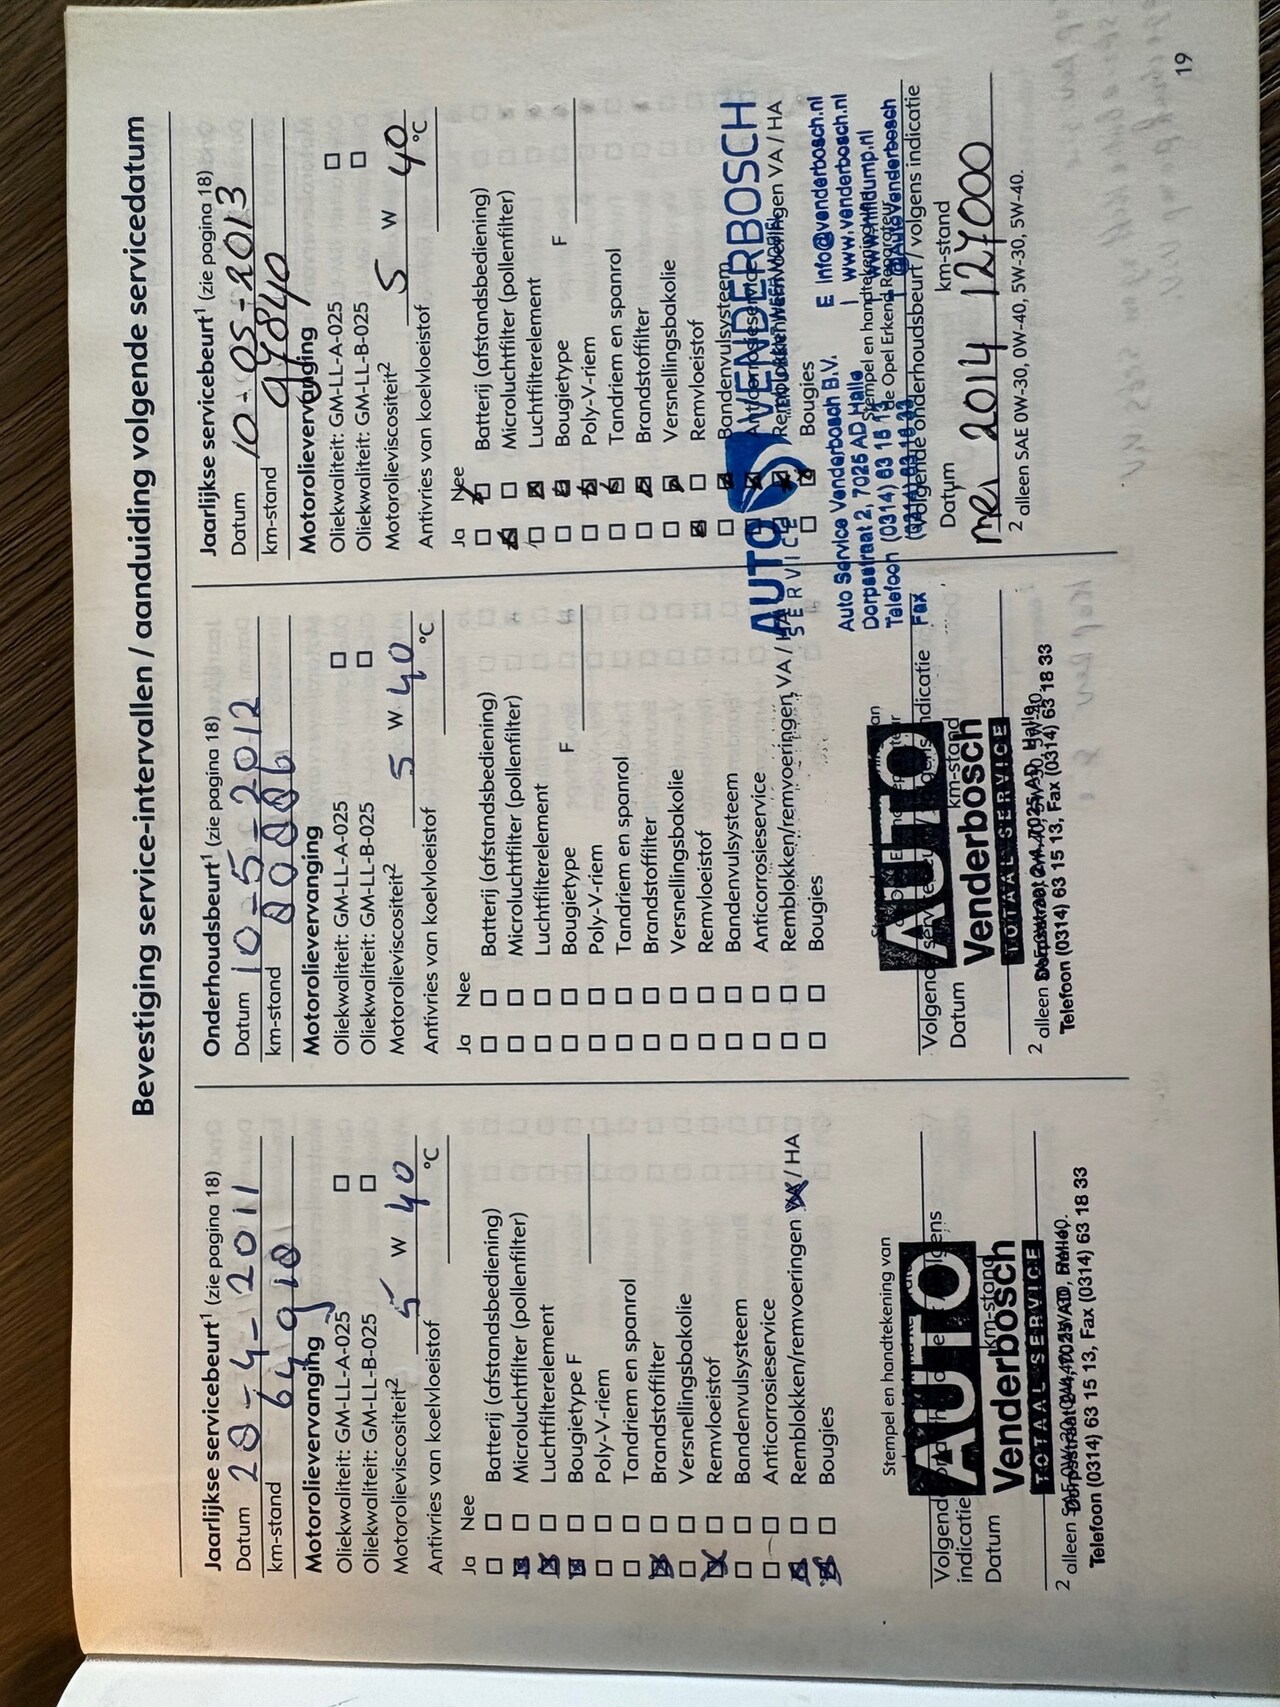 Bevestiging service-intervallen / aanduiding volgende servicedatum
Jaarlijkse servicebeurt¹ (zie pagina 18)
Datum 20-4-2011
km-stand 64910
Motorolievervanging
Oliekwaliteit: GM-LL-A-025 □
Oliekwaliteit: GM-LL-B-025 □
Motorolieviscositeit² 5 W 40
Antivries van koelvloeistof °C
Ja Nee
Batterij (afstandsbediening)
Microluchtfilter (pollenfilter)
Luchtfilterelement
Bougietype F
Poly-V-riem
Tandriem en spanrol
Brandstoffilter
Versnellingsbakolie
Remvloeistof
Bandenvulsysteem
Anticorrosieservice
Remblokken/remvoeringen VA / HA
Bougies
Stempel en handtekening van
AUTO
Venderbosch
TOTAAL SERVICE
Volgend
indicatie
Datum km-stand
² alleen
Telefoon (0314) 63 15 13, Fax (0314) 63 18 33
Onderhoudsbeurt¹ (zie pagina 18)
Datum 10-5-2012
km-stand
Motorolievervanging
Oliekwaliteit: GM-LL-A-025 □
Oliekwaliteit: GM-LL-B-025 □
Motorolieviscositeit² 5 W 40
Antivries van koelvloeistof °C
Ja Nee
Batterij (afstandsbediening)
Microluchtfilter (pollenfilter)
Luchtfilterelement
Bougietype F
Poly-V-riem
Tandriem en spanrol
Brandstoffilter
Versnellingsbakolie
Remvloeistof
Bandenvulsysteem
Anticorrosieservice
Remblokken/remvoeringen VA / HA
Bougies
AUTO
Venderbosch
TOTAAL SERVICE
Datum km-stand
² alleen
Telefoon (0314) 63 15 13, Fax (0314) 63 18 33
Jaarlijkse servicebeurt¹ (zie pagina 18)
Datum 10-05-2013
km-stand 97840
Motorolievervanging
Oliekwaliteit: GM-LL-A-025 □
Oliekwaliteit: GM-LL-B-025 □
Motorolieviscositeit² 5 W 40
Antivries van koelvloeistof °C
Ja Nee
Batterij (afstandsbediening)
Microluchtfilter (pollenfilter)
Luchtfilterelement
Bougietype F
Poly-V-riem
Tandriem en spanrol
Brandstoffilter
Versnellingsbakolie
Remvloeistof
Bandenvulsysteem
Anticorrosieservice
Remblokken/remvoeringen VA / HA
Bougies
AUTO VENDERBOSCH
SERVICE
Auto Service Venderbosch B.V. E info@venderbosch.nl
Dorpsstraat 2, 7025 AD Halle I www.venderbosch.nl
Stempel en handtekening van
de Opel Erkend Reparateur
Telefoon (0314) 63 15 13
@AutoVenderbosch
Fax
Volgende onderhoudsbeurt / volgens indicatie
Datum km-stand
mei 2014 127000
² alleen SAE 0W-30, 0W-40, 5W-30, 5W-40.
19